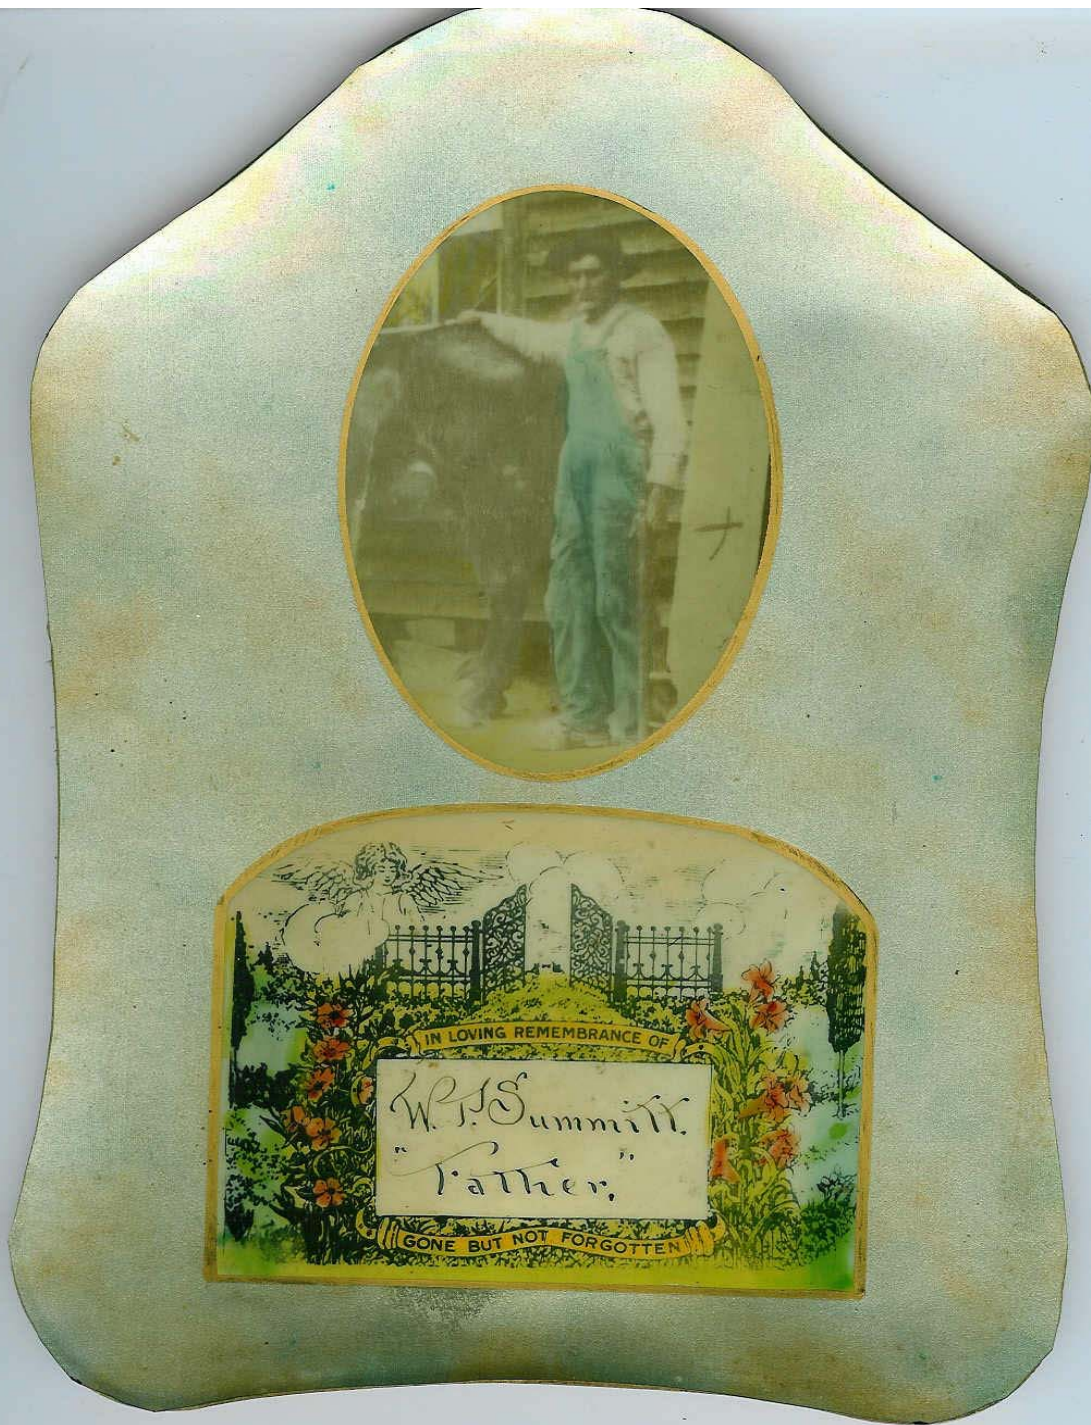 IN LOVING REMEMBRANCE OF
W. T. Summitt.
"Father."
GONE BUT NOT FORGOTTEN